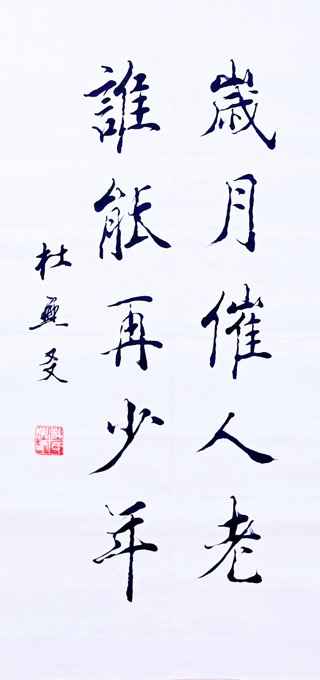 歲月催人老
誰能再少年
杜